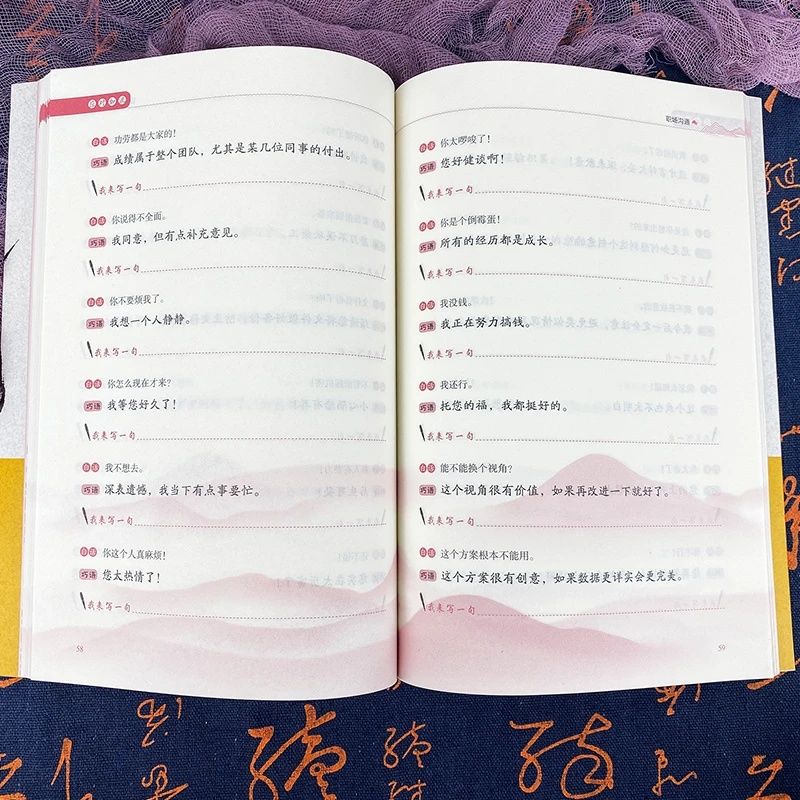 职场沟通
白话 功劳都是大家的！
巧语 成绩属于整个团队，尤其是某几位同事的付出。
我来写一句
白话 你说得不全面。
巧语 我同意，但有点补充意见。
我来写一句
白话 你不要烦我了。
巧语 我想一个人静静。
我来写一句
白话 你怎么现在才来？
巧语 我等您好久了！
我来写一句
白话 我不想去。
巧语 深表遗憾，我当下有点事要忙。
我来写一句
白话 你这个人真麻烦！
巧语 您太热情了！
我来写一句
58
白话 你太啰唆了！
巧语 您好健谈啊！
我来写一句
白话 你是个倒霉蛋！
巧语 所有的经历都是成长。
我来写一句
白话 我没钱。
巧语 我正在努力搞钱。
我来写一句
白话 我还行。
巧语 托您的福，我都挺好的。
我来写一句
白话 能不能换个视角？
巧语 这个视角很有价值，如果再改进一下就好了。
我来写一句
白话 这个方案根本不能用。
巧语 这个方案很有创意，如果数据更详实会更完美。
我来写一句
59